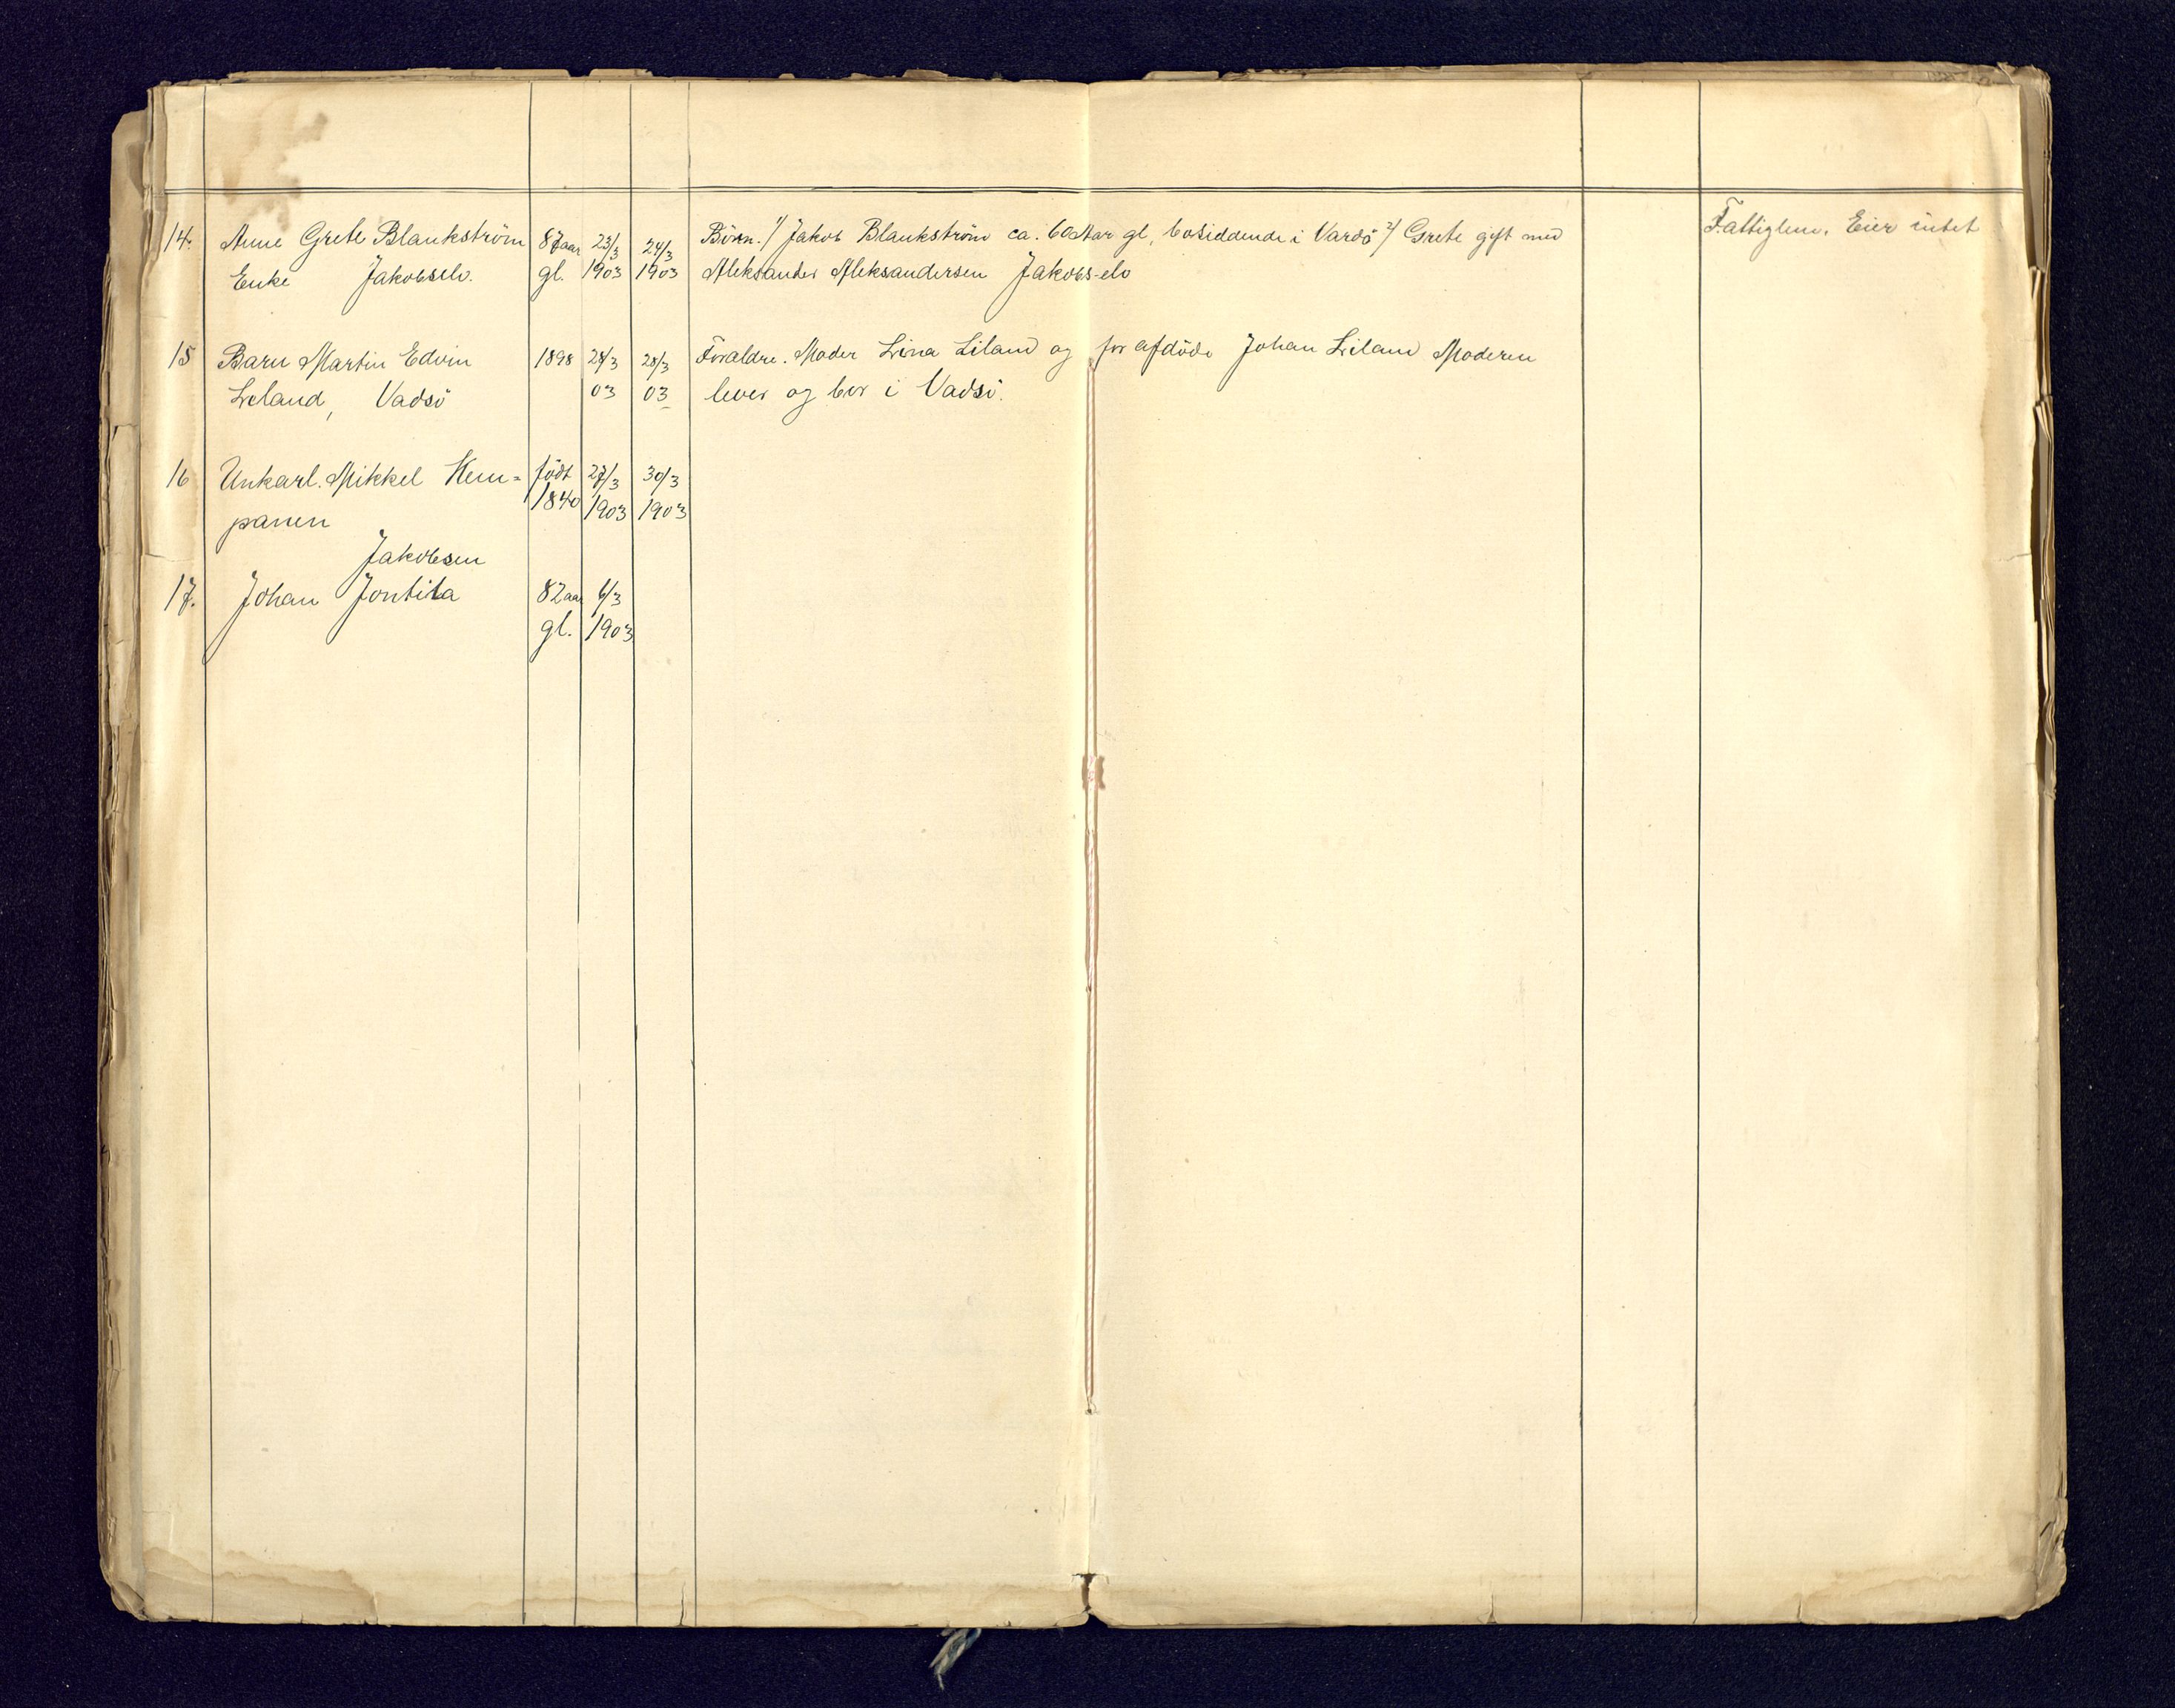 14. Anne Grete Blankström 87 aar 23/3 24/3 Börn. 1/ Jakob Blankström ca. 60 Aar gl, bosiddende i Vardö 2/ Grete gift med Fattiglem. Eier intet
Enke Jakobselv. gl. 1903 1903 Aleksander Aleksandersen Jakobs-elv
15 Barn Martin Edvin 1898 28/3 28/3 Foraldre. Moder Lina Liland og for afdöde Johan Liland Moderen
Leland, Vadsö 03 03 lever og bor i Vadsö.
16 Unkarl. Mikkel Kem= födt 27/3 30/3
panen 1840 1903 1903
Jakobsen
17. Johan Jontila 82 aar 6/3
gl. 1903